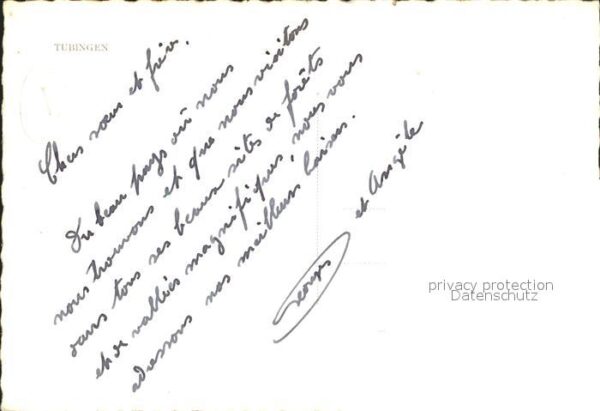 TÜBINGEN
Chers sœur et frère.
Du beau pays où nous
nous trouvons et que nous visitons
dans tous ses beaux sites de forêts
et de vallées magnifiques, nous vous
adressons nos meilleurs baisers.
Georges et Angèle
privacy protection
Datenschutz